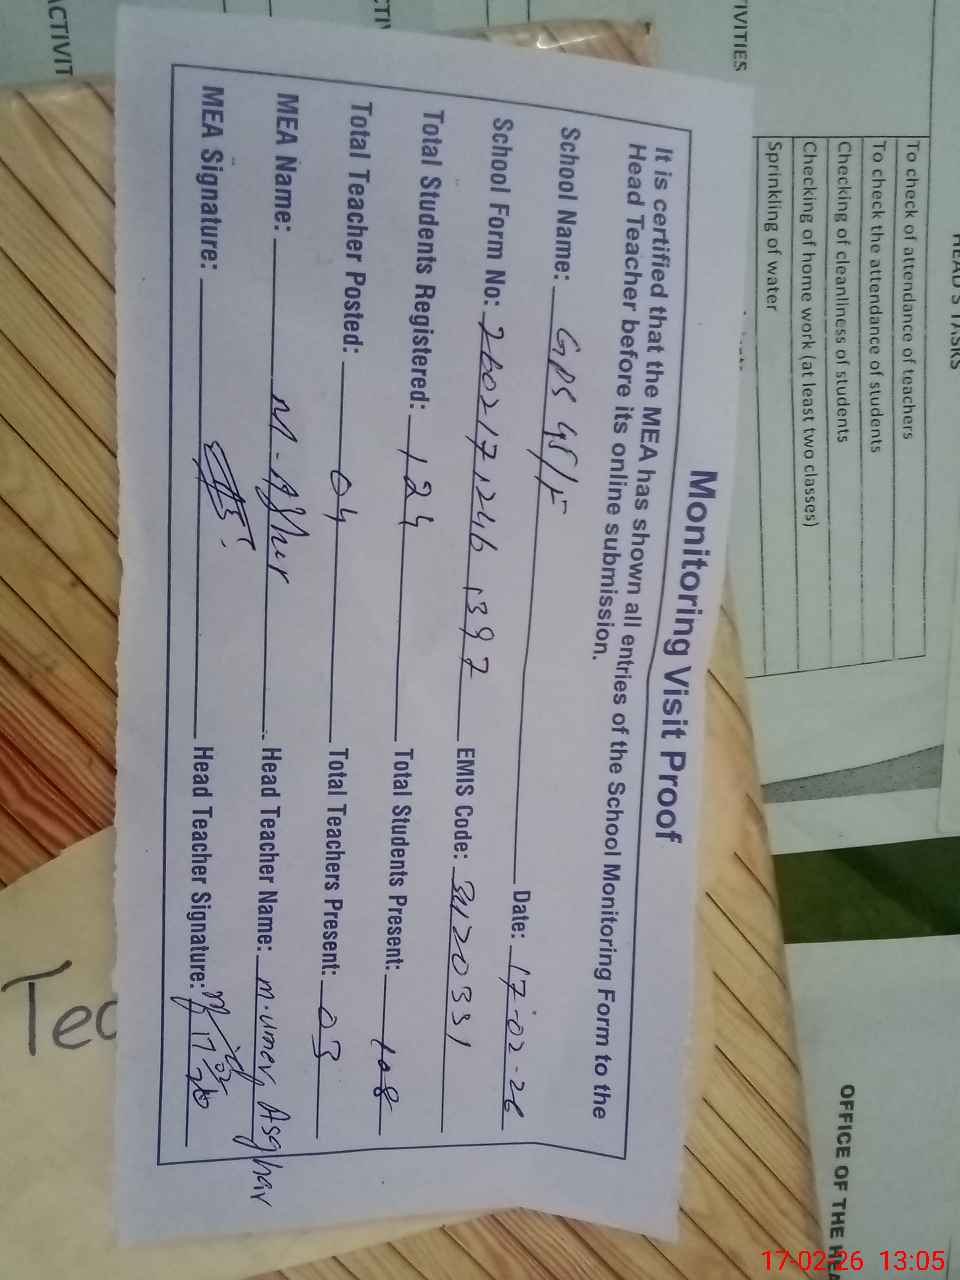 Monitoring Visit Proof
It is certified that the MEA has shown all entries of the School Monitoring Form to the
Head Teacher before its online submission.
School Name: GPS 45/F Date: 17-02-26
School Form No: 26021712461397 EMIS Code: 31120331
Total Students Registered: 124 Total Students Present: 108
Total Teacher Posted: 04 Total Teachers Present: 03
MEA Name: M. Head Teacher Name: M. Umer Asghar
MEA Signature: Head Teacher Signature:
HEAD'S TASKS
To check of attendance of teachers
To check the attendance of students
Checking of cleanliness of students
Checking of home work (at least two classes)
Sprinkling of water
IVITIES
CTI
ACTIVIT
OFFICE OF THE HEA
Tec
17-02-26 13:05